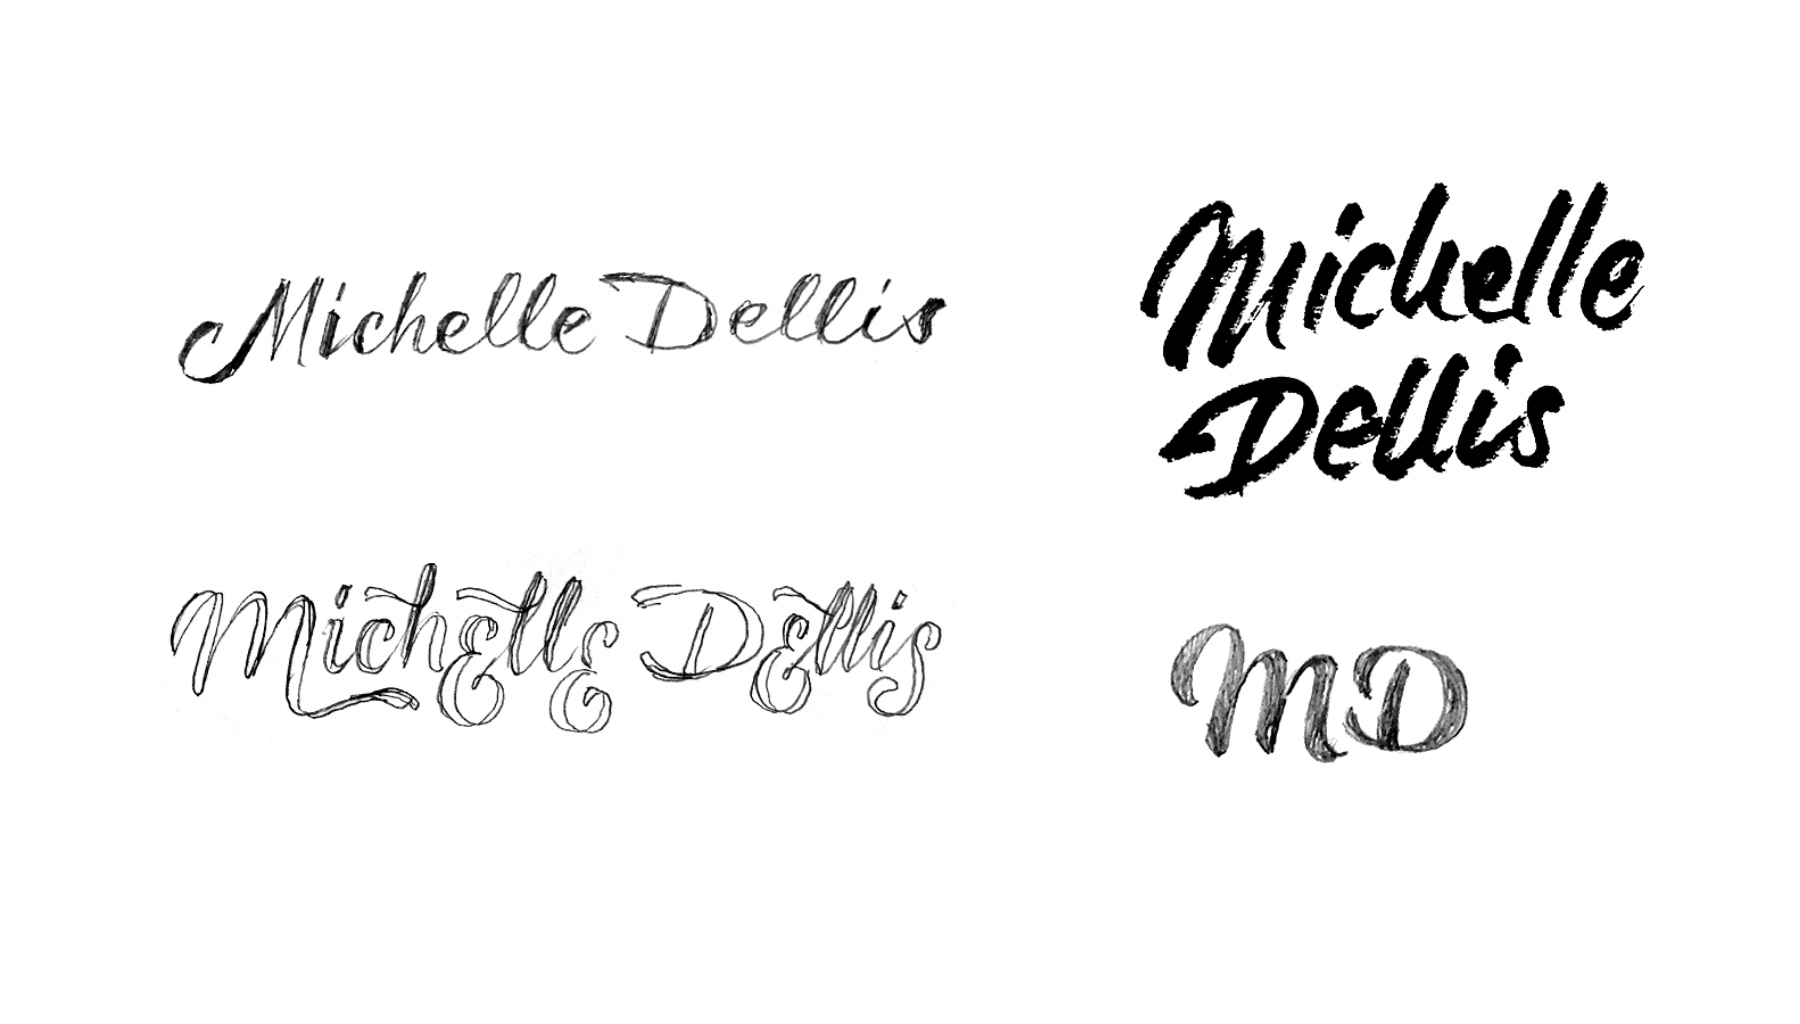 Michelle Dellis
Michelle
Dellis
MichElle DEllis
MD